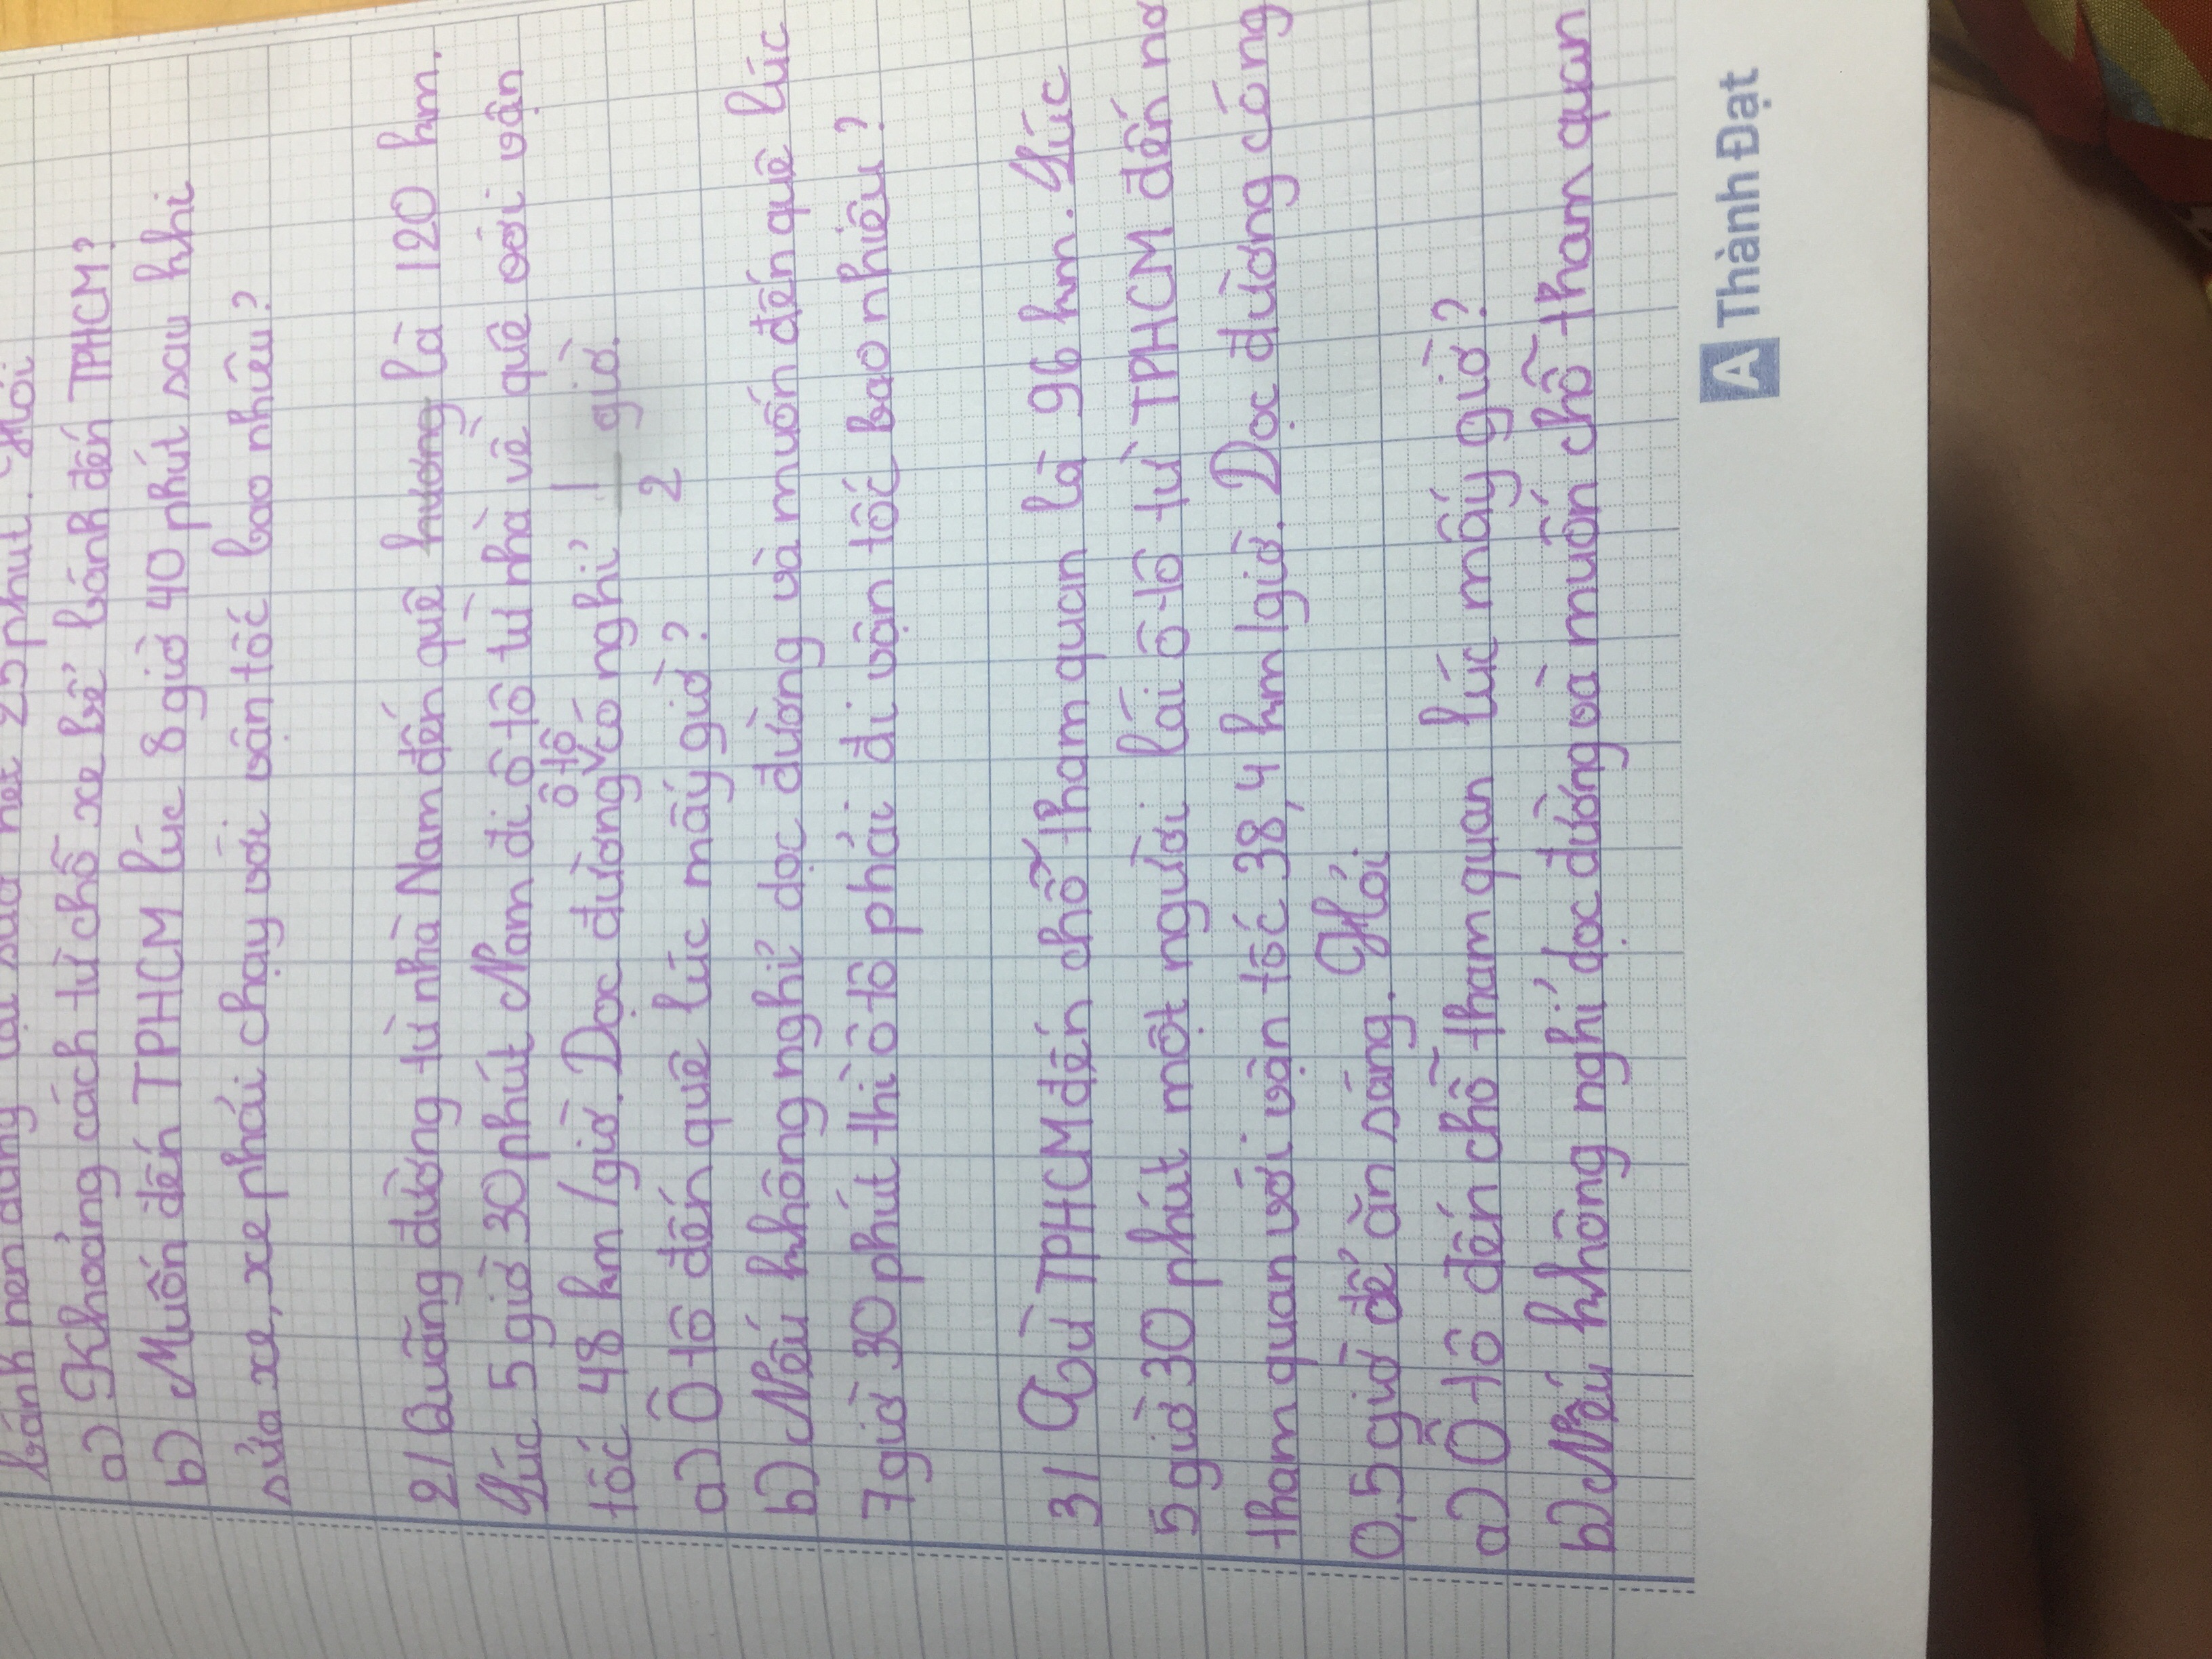 bánh nên dừng lại sửa hết 25 phút. Hỏi
a) Khoảng cách từ chỗ xe bể bánh đến TPHCM?
b) Muốn đến TPHCM lúc 8 giờ 40 phút sau khi
sửa xe, xe phải chạy với vận tốc bao nhiêu?
2/ Quãng đường từ nhà Nam đến quê hương là 120 km.
Lúc 5 giờ 30 phút Nam đi ô tô từ nhà về quê với vận
tốc 48 km/giờ. Dọc đường ô tô có nghỉ 1/2 giờ.
a) Ô tô đến quê lúc mấy giờ?
b) Nếu không nghỉ dọc đường và muốn đến quê lúc
7 giờ 30 phút thì ô tô phải đi vận tốc bao nhiêu?
3/ Từ TPHCM đến chỗ tham quan là 96 km. Lúc
5 giờ 30 phút một người lái ô tô từ TPHCM đến nơ
tham quan với vận tốc 38,4 km/giờ. Dọc đường có ng
0,5 giờ để ăn sáng. Hỏi.
a) Ô tô đến chỗ tham quan lúc mấy giờ?
b) Nếu không nghỉ dọc đường và muốn chỗ tham quan
A Thành Đạt